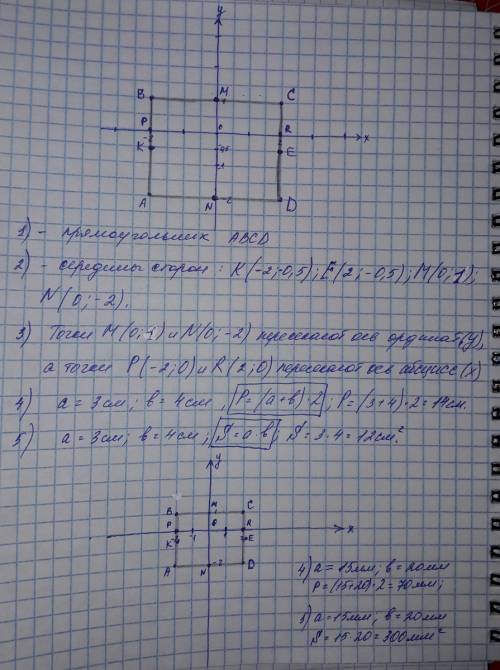 y
B M C
1
P 0 R x
-2 2
K 0,5 E
-1
A N -2 D
1) - прямоугольник ABCD
2) - середины сторон: K(-2;-0,5); E(2;-0,5); M(0;1);
N(0;-2).
3) Точки M(0;1) и N(0;-2) пересекают ось ординат(y),
а точки P(-2;0) и R(2;0) пересекают ось абсцисс(x)
4) a = 3см; в = 4см, P=(a+в)·2; P=(3+4)·2=14см.
5) a = 3см; в = 4см; S=a·в; S=3·4=12см²
y
B M C
P 0 R x
K -2 -1 2 E
A N -2 D
4) a = 15мм; в = 20мм
P=(15+20)·2=70мм;
5) a = 15мм, в = 20мм
S=15·20=300мм²